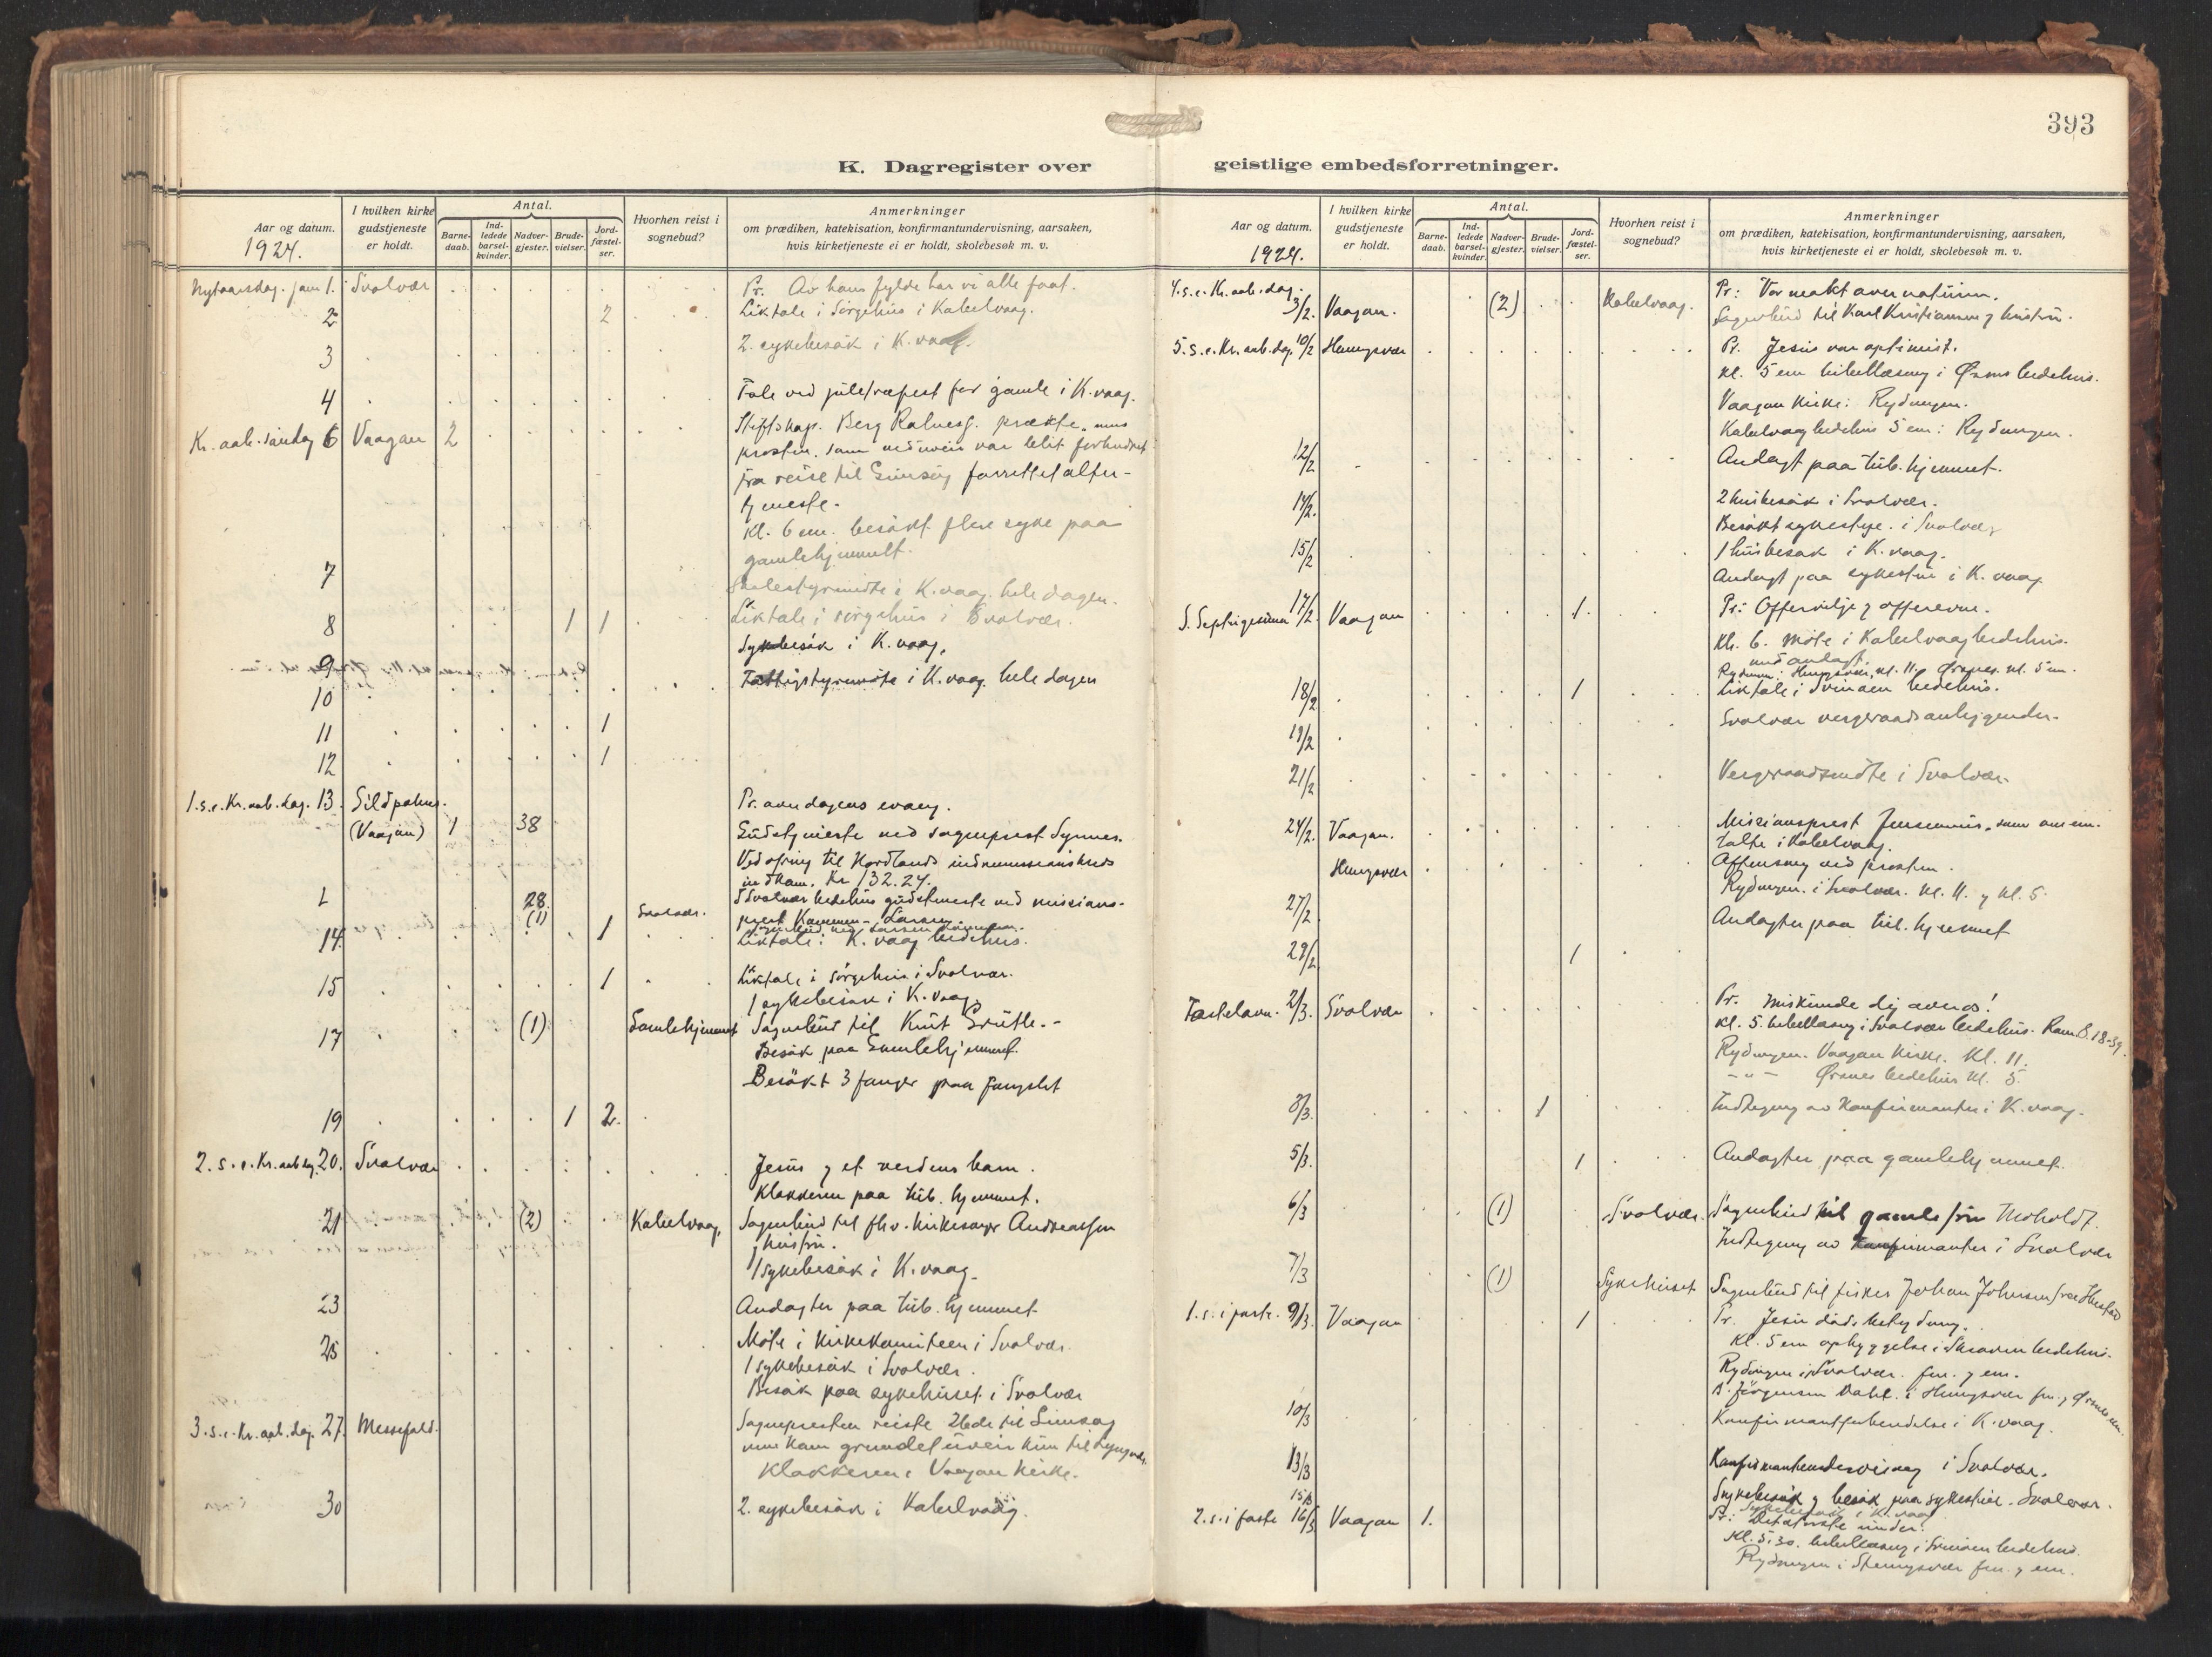 393
K. Dagregister over
Aar og datum.
1924.
I hvilken kirke gudstjeneste er holdt.
Antal.
Barne-daab.
Ind-ledede barsel-kvinder.
Nadver-gjester.
Brude-vielser.
Jord-fæstel-ser.
Hvorhen reist i sognebud?
Anmerkninger
om prædiken, katekisation, konfirmantundervisning, aarsaken,
hvis kirketjeneste ei er holdt, skolebesøk m. v.
Nytaarsdag. jan 1. Svolvær Pr. Av hans fylde har vi alle faat.
2 2 Liktale i sørgehus i Kabelvaag.
3 2. sykebesøk i K.vaag.
4 Tale ved juletræfest for gamle i K.vaag.
Kr. aab. søndag 6 Vaagan 2 Stiftskap. Berg prækte, mens
prosten, som ved uveir var blit forhindret
fra reise til Gimsøy forrettet alter-
tjeneste.
Kl. 6 em. besøkt flere syke paa
gamlehjemmet.
7 Skolestyremøte i K.vaag hele dagen.
8 1 1 Liktale i sørgehus i Svolvær.
9 Sykebesøk i K.vaag.
10 Fattigstyremøte i K.vaag hele dagen
11 1
12 1
1.s.e.Kr.aab.dag. 13. Sildpolnes. Pr. over dagens evang.
(Vaagan) 1 38 Gudstjeneste ved sogneprest Synnes.
Ved ofring til Nordlands indremissionskreds
indkom. Kr 132.24.
28 I Svolvær bedehus gudstjeneste ved missions-
(1) Svolvær. prest Kammen-Larsen.
14 1 Liktale i K.vaag bedehus.
15 1 Liktale i sørgehus i Svolvær.
1 sykebesøk i K.vaag.
17 (1) Gamlehjemmet Sognebud til Knut
Besøk paa Gamlehjemmet.
Besøkt 3 fanger paa fængslet
19 1 2.
2.s.e.Kr.aab.dag. 20. Svolvær Jesus og et verdens barn.
Klokkeren paa tub. hjemmet.
21 (2) Kabelvaag. Sognebud til fhv. kirkesanger Andreassen
og hustru.
1 sykebesøk i K.vaag.
23 Andagter paa tub. hjemmet
25 Møte i kirkekomiteen i Svolvær.
1 sykebesøk i Svolvær.
Besøk paa sykehuset i Svolvær
3.s.e.Kr.aab.dag. 27. Messefald. Sognepresten reiste 26de til Gimsøy
men kom grundet uveir kun til
Klokkeren i Vaagan kirke.
30 2. sykebesøk i Kabelvaag.
geistlige embedsforretninger.
Aar og datum.
1924.
I hvilken kirke gudstjeneste er holdt.
Antal.
Barne-daab.
Ind-ledede barsel-kvinder.
Nadver-gjester.
Brude-vielser.
Jord-fæstel-ser.
Hvorhen reist i sognebud?
Anmerkninger
om prædiken, katekisation, konfirmantundervisning, aarsaken,
hvis kirketjeneste ei er holdt, skolebesøk m. v.
4.s.e.Kr.aab.dag. Pr: Vor makt over naturen.
3/2. Vaagan. (2) Kabelvaag. Sognebud til Karl Kristiansen og hustru.
5.s.e.Kr.aab.dag. 10/2 Henningsvær Pr. Jesus var optimist.
Kl. 5 em bibellæsning i Ørsnes bedehus.
Vaagan kirke: Rydningen.
Kabelvaag bedehus 5 em: Rydningen.
12/2 Andagt paa tub. hjemmet.
14/2. 2 husbesøk i Svolvær.
Besøkt sykestue. i Svolvær
15/2 1 husbesøk i K.vaag.
Andagt paa sykestue i K.vaag
S. Septuagesima 17/2. Vaagan 1. Pr: Offervilje og offerevne.
Kl. 6. Møte i Kabelvaag bedehus.
med andagt.
Rydningen: Henningsvær, kl. 11 og Ørsnes. kl. 5 em.
18/2 1 Liktale i Svinøen bedehus.
19/2 Svolvær vergeraadsanliggender.
21/2 Vergeraadsmøte i Svolvær.
24/2. Vaagan. Missionsprest som om em.
talte i Kabelvaag.
Henningsvær ved prosten.
Rydningen. i Svolvær. kl. 11. og kl. 5.
27/2 Andagter paa tub. hjemmet
29/2 1
Fastelavn. 2/3. Svolvær Pr. Miskunde dig over os!
Kl. 5. bibellæsning i Svolvær bedehus. Rom. 8. 18-39.
Rydningen. Vaagan kirke. Kl. 11.
-"- Ørsnes bedehus kl. 5.
3/3. 1 Indtegning av konfirmanter i K.vaag.
5/3. 1 Andagter paa gamlehjemmet.
6/3 (1) Svolvær. Sognebud til gamle fru Thoholdt.
Indtegning av konfirmanter i Svolvær
7/3 (1) Sykehuset Sognebud til fisker Johan Johnsen fra
1.s. i faste. 9/3. Vaagan 1 Pr. Jesu døds betydning.
Kl. 5 em opbyggelse i Skroven bedehus.
Rydningen i Svolvær. fm. og em.
B. Jørgensen Dahl. i Henningsvær fm. og Ørsnes em.
10/3 Konfirmantforberedelse i K.vaag.
13/3 Konfirmantundervisning i Svolvær.
15/3 Sykebesøk og besøk paa sykestue. Svolvær.
Sykebesøk i K.vaag
2.s. i faste 16/3 Vaagan 1. Pr: Det største under.
Kl. 5.30. bibellæsning i Svinøen bedehus.
Rydningen i Henningsvær fm. og em.